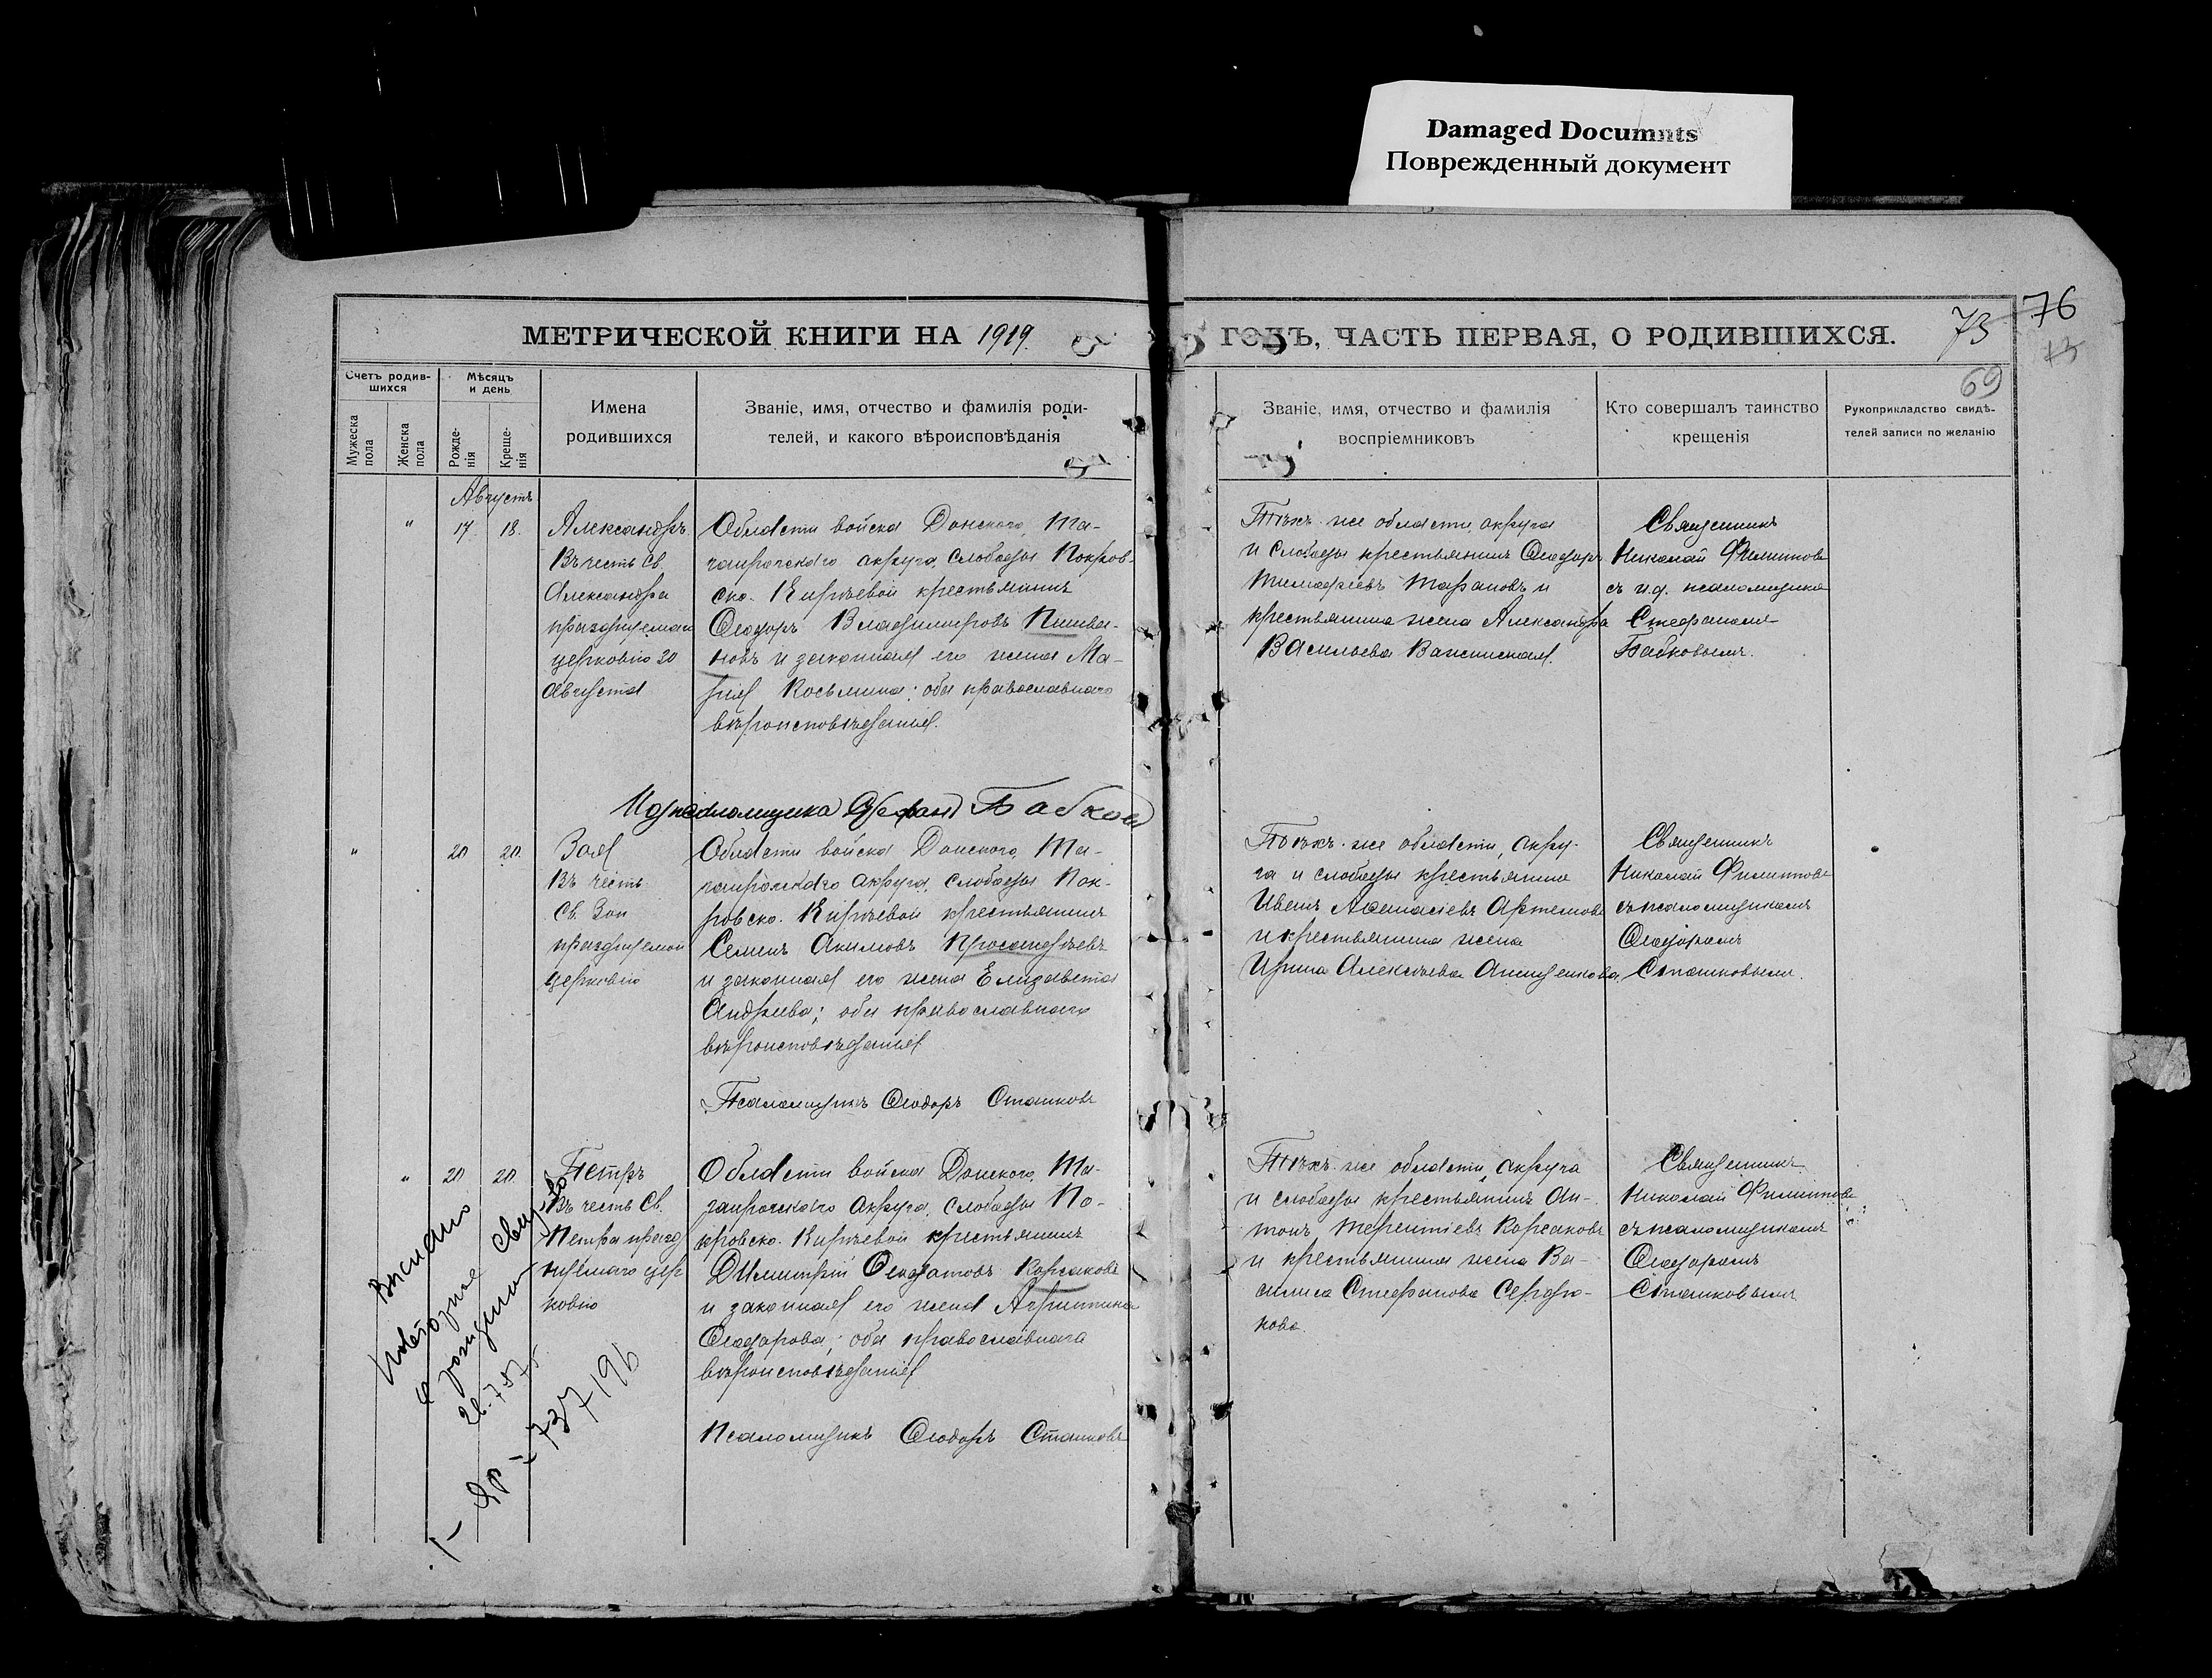 Damaged Documnts
Поврежденный документ
МЕТРИЧЕСКОЙ КНИГИ НА 1919.
ГОДЪ, ЧАСТЬ ПЕРВАЯ, О РОДИВШИХСЯ.
73 76
69
Счетъ родив-
шихся
Мужеска
пола
Женска
пола
Мѣсяцъ
и день
Рожде-
нія
Креще-
нія
Имена
родившихся
Званіе, имя, отчество и фамилія роди-
телей, и какого вѣроисповѣданія
Званіе, имя, отчество и фамилія
воспріемниковъ
Кто совершалъ таинство
крещенія
Рукоприкладство свидѣ-
телей записи по желанію
Августъ
" 17 18.
Александръ
Въ честь Св.
Александра
церковію 20
августа
Области войска Донского, Та-
ганрогскаго округа, слободы Покров-
ско-Кирѣевой крестьянинъ
Ѳеодоръ Владимировъ Пшива-
новъ и законная его жена Ма-
рія Косьмина; оба православнаго
вѣроисповѣданія.
Тѣхъ-же области, округа
и слободы крестьянинъ Ѳеодоръ
Тимофеевъ Тарановъ и
крестьянина жена Александра
Васильева
Священникъ
Николай Филиппов
съ и.д. псаломщика
Стефаномъ
Бабковымъ.
И.д. псаломщика Стефанъ Бабковъ
" 20 20.
Зоя
Въ честь
Св. Зои
празднуемой
церковію
Области войска Донского, Та-
ганрогскаго округа, слободы Пок-
ровско-Кирѣевой крестьянинъ
Семенъ Акимовъ
и законная его жена Елизавета
Андреева; оба православнаго
вѣроисповѣданія
Тѣхъ-же области, окру-
га и слободы крестьянинъ
Иванъ Афанасіевъ Артемовъ
и крестьянина жена
Ирина Алексѣева Анищенкова.
Священникъ
Николай Филиппов
съ псаломщикомъ
Ѳеодоромъ
Сташковымъ.
Псаломщикъ Ѳеодоръ Сташковъ
" 20 20.
Петръ
Въ честь Св.
Петра празд
нуемаго цер
ковію
Области войска Донского, Та-
ганрогскаго округа, слободы По-
кровско-Кирѣевой крестьянинъ
Димитрій Ѳеодотовъ Корсаковъ
и законная его жена Агриппина
Ѳеодорова; оба православнаго
вѣроисповѣданія
Тѣхъ-же области, округа
и слободы крестьянинъ Ан-
тонъ Терентіевъ Корсаковъ
и крестьянина жена Ва-
силиса Стефанова Сердю-
кова.
Священникъ
Николай Филиппов
съ псаломщикомъ
Ѳеодоромъ
Сташковымъ
Псаломщикъ Ѳеодоръ Сташковъ
Выслано
повторное свид-во
о рождении
737196